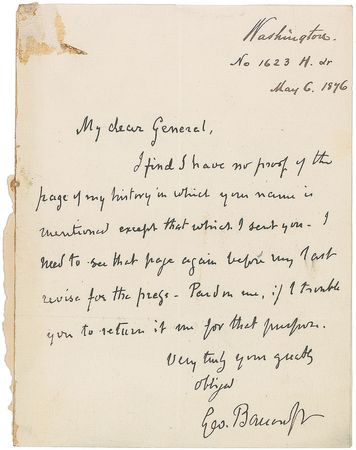 Washington.
No 1623 H. St
May 6. 1876
My dear General,
I find I have no proof of the
page of my history in which your name is
mentioned except that which I sent you. I
need to see that page again before my last
revise for the press. Pardon me, if I trouble
you to return it me for that purpose.
Very truly your greatly
obliged
Geo. Bancroft